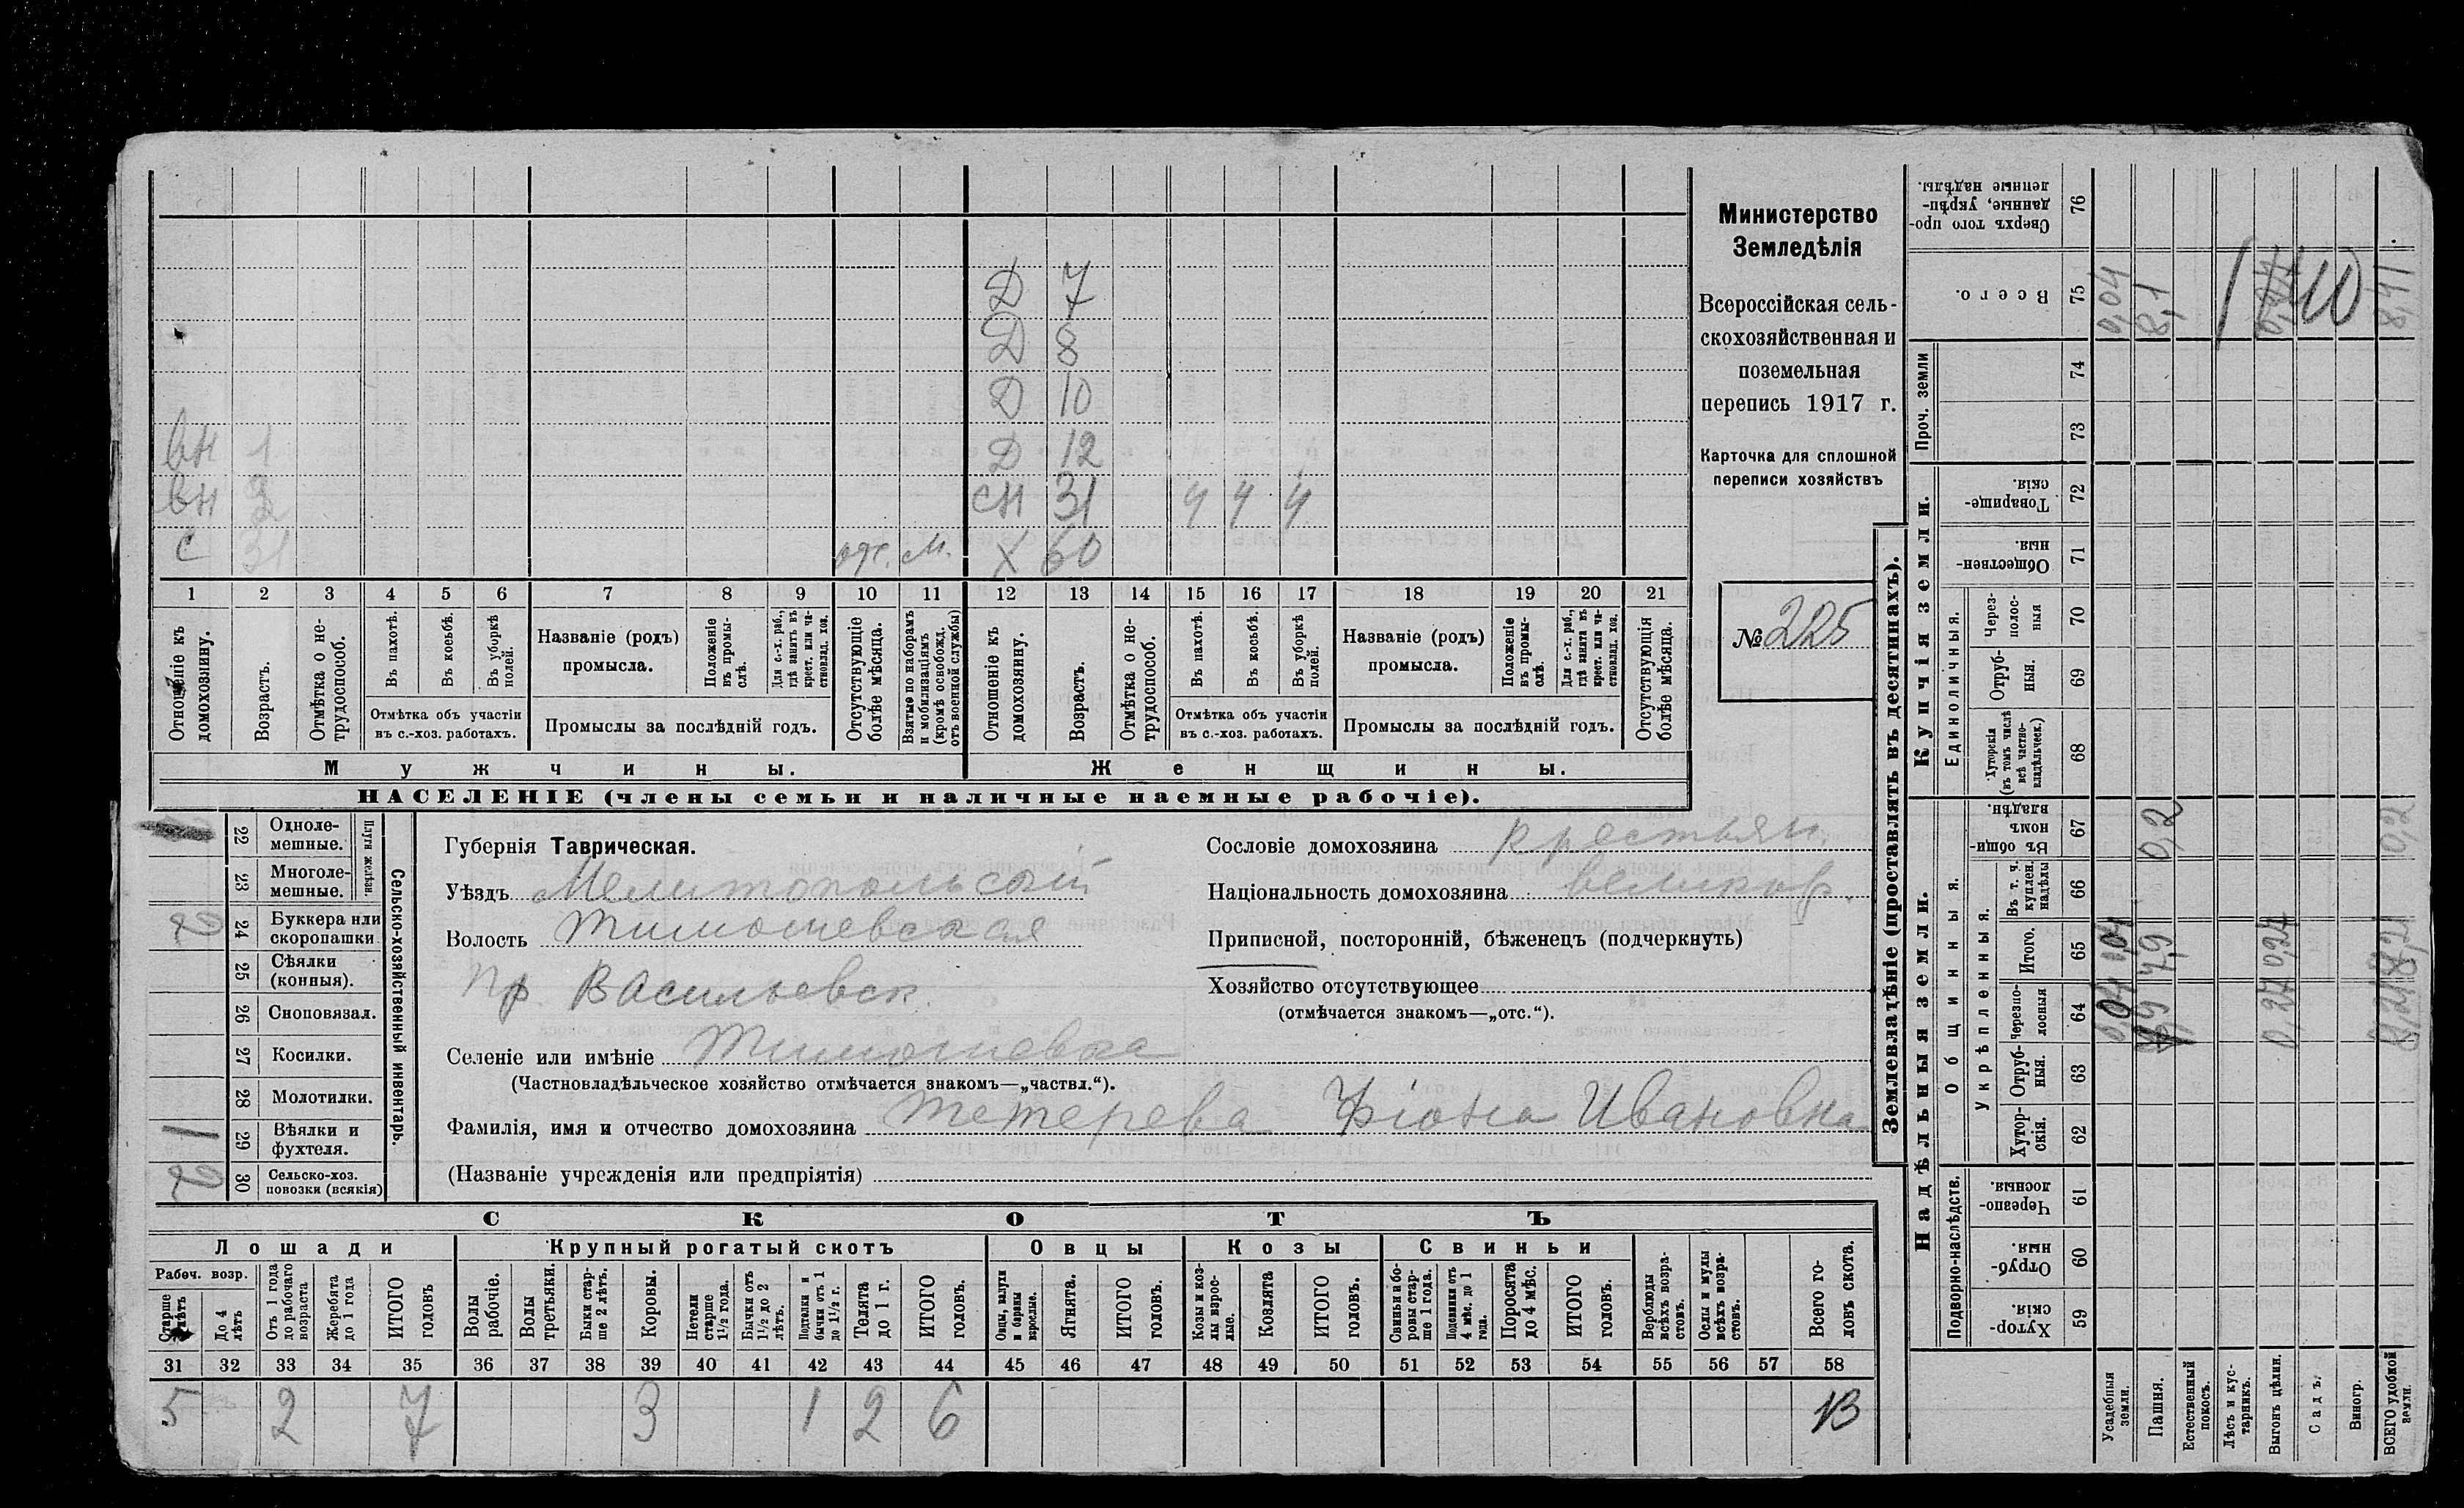 Д 7
Д 8
Д 10
вн 1 Д 12
вн 2 сн 31 ч ч ч
с 31 отс. м. Х 60
1 2 3 4 5 6 7 8 9 10 11 12 13 14 15 16 17 18 19 20 21
Отношеніе къ домохозяину.
Возрастъ.
Отмѣтка о не-трудоспособ.
Въ пахотѣ.
Въ косьбѣ.
Въ уборкѣ полей.
Отмѣтка объ участіи
въ с.-хоз. работахъ.
Названіе (родъ)
промысла.
Положеніе въ промы-слѣ.
Для с.-х. раб., гдѣ занятъ въ крест. или ча-стновлад. хоз.
Промыслы за послѣдній годъ.
Отсутствующіе болѣе мѣсяца.
Взятые по наборамъ и мобилизаціямъ (кромѣ освобожд. отъ военной службы)
Отношеніе къ домохозяину.
Возрастъ.
Отмѣтка о не-трудоспособ.
Въ пахотѣ.
Въ косьбѣ.
Въ уборкѣ полей.
Отмѣтка объ участіи
въ с.-хоз. работахъ.
Названіе (родъ)
промысла.
Положеніе въ промы-слѣ.
Для с.-х. раб., гдѣ занята въ крест. или ча-стновлад. хоз.
Промыслы за послѣдній годъ.
Отсутствующія болѣе мѣсяца.
Мужчины. Женщины.
НАСЕЛЕНІЕ (члены семьи и наличные наемные рабочіе).
Министерство
Земледѣлія
Всероссійская сель-
скохозяйственная и
поземельная
перепись 1917 г.
Карточка для сплошной
переписи хозяйствъ
№ 225
Сельско-хозяйственный инвентарь.
22 Одноле-мешные.
23 Многоле-мешные.
2 24 Буккера или скоропашки
25 Сѣялки (конныя).
26 Сноповязал.
27 Косилки.
28 Молотилки.
1 29 Вѣялки и фухтеля.
2 30 Сельско-хоз. повозки (всякія)
Губернія Таврическая.
Уѣздъ Мелитопольскій
Волость Тимошевская
пр. Васильевск.
Селеніе или имѣніе Тимошевка
(Частновладѣльческое хозяйство отмѣчается знакомъ—„частвл.“).
Фамилія, имя и отчество домохозяина Тетерева Фіона Ивановна
(Названіе учрежденія или предпріятія)
Сословіе домохозяина крестьян.
Національность домохозяина великор.
Приписной, посторонній, бѣженецъ (подчеркнуть)
Хозяйство отсутствующее
(отмѣчается знакомъ—„отс.“).
СКОТЪ
Лошади Крупный рогатый скотъ Овцы Козы Свиньи
Рабоч. возр.
Старше 4 лѣтъ
До 4 лѣтъ
Отъ 1 года до рабочаго возраста
Жеребята до 1 года
ИТОГО головъ
Волы рабочіе.
Волы третьяки.
Быки стар-ше 2 лѣтъ.
Коровы.
Нетели старше 1½ года.
Бычки отъ 1½ до 2 лѣтъ.
Подтелки и бычки отъ 1 до 1½ г.
Телята до 1 г.
ИТОГО головъ.
Овцы, валухи и бараны взрослые.
Ягнята.
ИТОГО головъ.
Козы и коз-лы взрос-лые.
Козлята
ИТОГО головъ.
Свиньи и бо-ровы стар-ше 1 года.
Подсвинки отъ 4 мѣс. до 1 года.
Поросята до 4 мѣс.
ИТОГО головъ.
Верблюды всѣхъ возра-стовъ.
Ослы и мулы всѣхъ возра-стовъ.
Всего го-ловъ скота.
31 32 33 34 35 36 37 38 39 40 41 42 43 44 45 46 47 48 49 50 51 52 53 54 55 56 57 58
5 2 7 3 1 2 6 13
Землевладѣніе (проставлять въ десятинахъ).
Надѣльныя земли. Купчія земли. Проч. земли
Подворно-наслѣдств.
Общинныя.
Укрѣпленныя.
Единоличныя.
59 Хутор-скія
60 Отруб-ныя.
61 Черезпо-лосныя.
62 Хутор-скія.
63 Отруб-ныя.
64 Черезпо-лосныя
65 Итого.
66 Въ т. ч. куплен. надѣлы
67 Въ общин-номъ владѣн.
68 Хуторскія (въ томъ числѣ всѣ частно-владѣльческ.)
69 Отруб-ныя.
70 Через-полос-ныя
71 Обществен-ныя.
72 Товарище-скія.
73
74
75 Всего.
76 Сверхъ того про-данные, укрѣп-ленные надѣлы.
Усадебныя земли. 0,04 0,04 0,04
Пашня. 7,9 7,9 0,2 8,1
Естественный покосъ.
Лѣсъ и кус-тарникъ.
Выгонъ цѣлин. 0,27 0,27
Садъ.
Виногр.
ВСЕГО удобной земли. 8,21 8,21 0,2 8,41